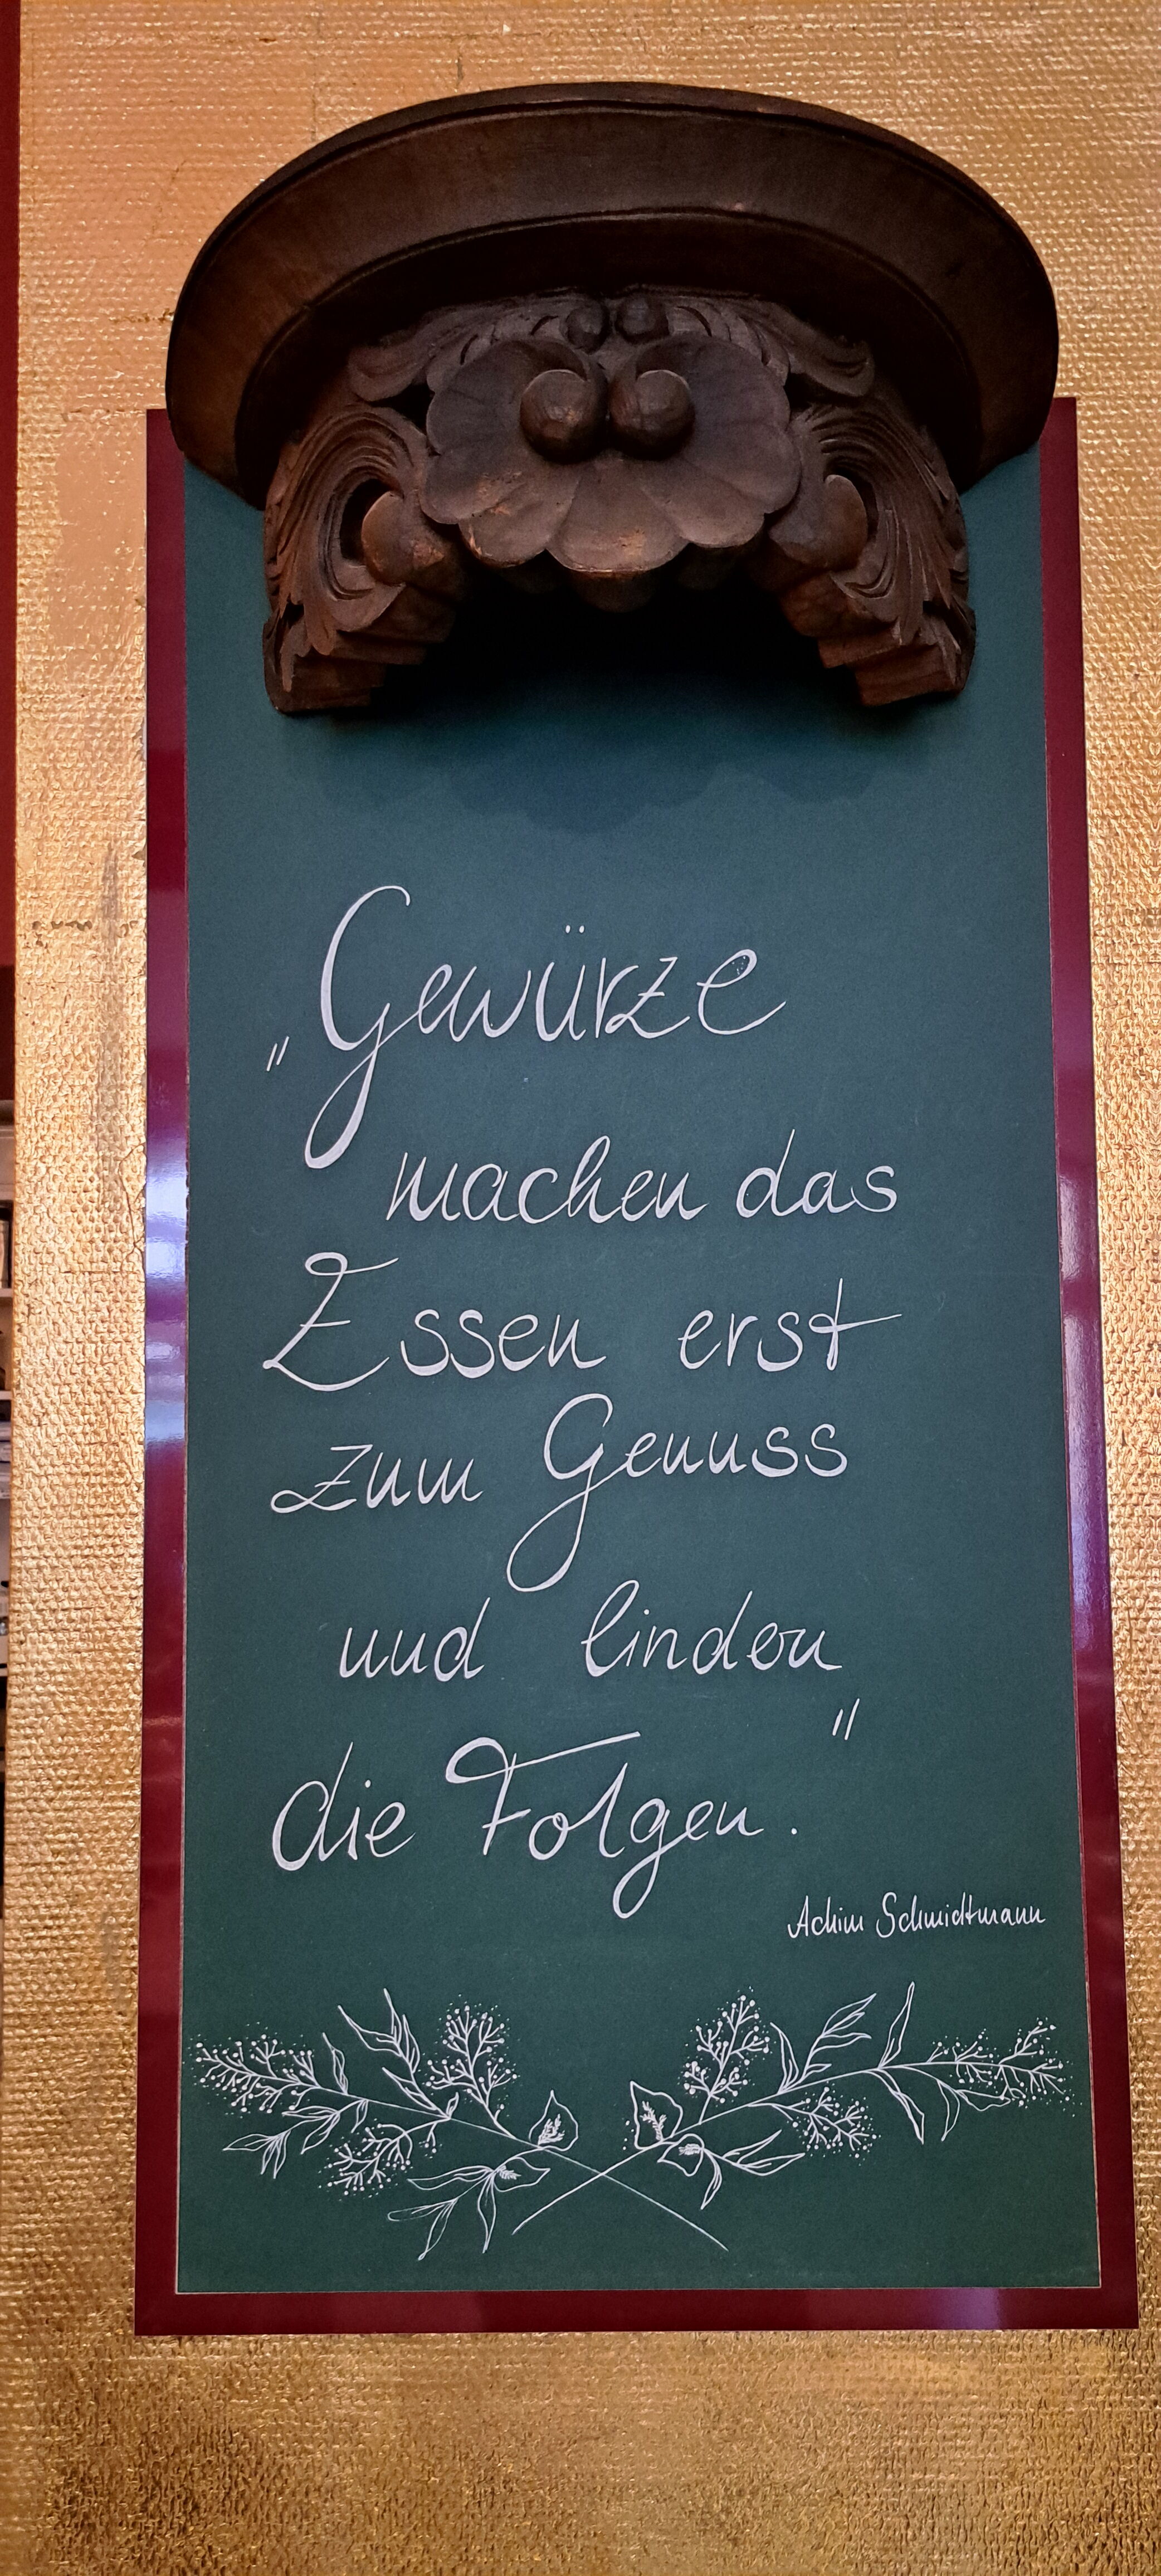 „Gewürze
machen das
Essen erst
zum Genuss
und lindern
die Folgen."
Achim Schmidtmann